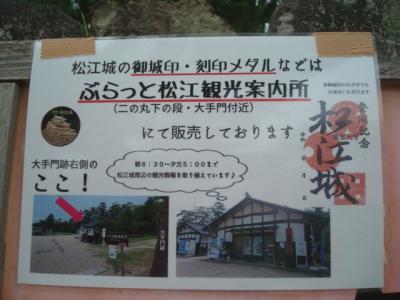 松江城の御城印・刻印メダルなどは
ぶらっと松江観光案内所
(二の丸下の段・大手門付近)
にて販売しております
大手門跡右側の
ここ!
朝9:30~夕方5:00まで
松江城周辺の観光情報を取り揃えています♪
大手門跡
登城記念
松江城